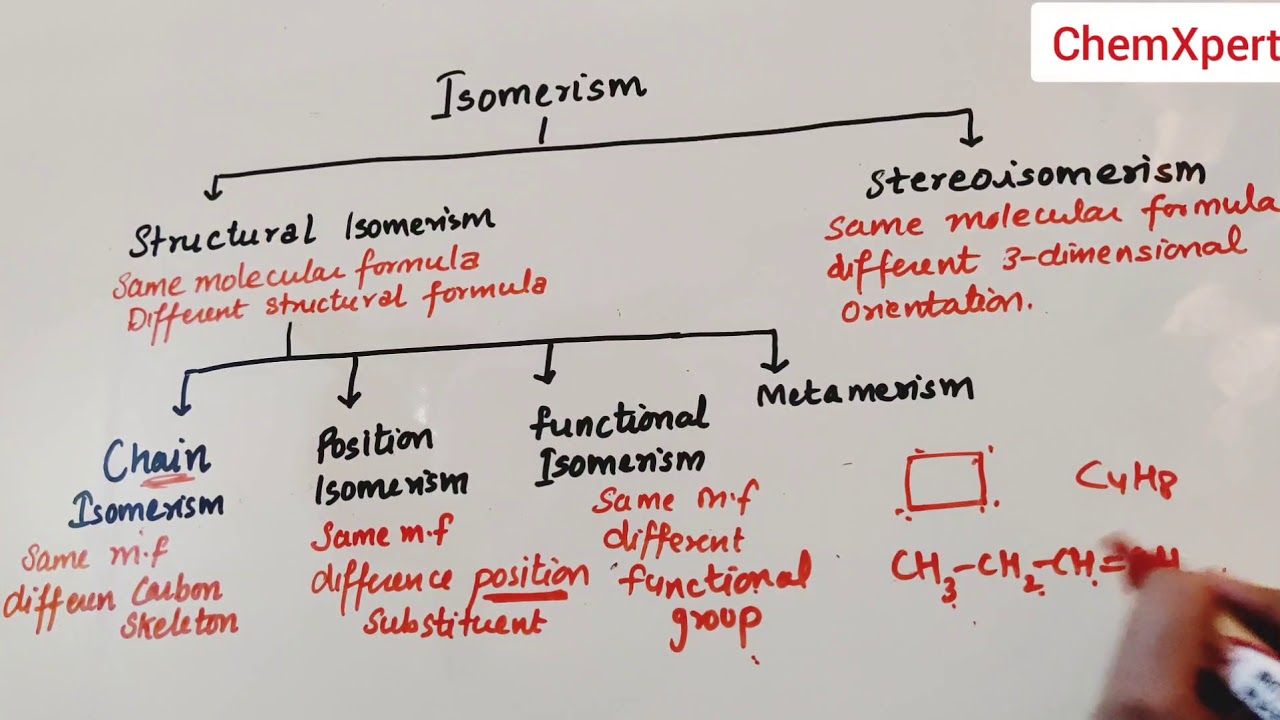 ChemXpert
Isomerism
Structural Isomerism
Same molecular formula
Different structural formula
Stereoisomerism
Same molecular formula
different 3-dimensional
orientation.
Chain
Isomerism
Same m.f
differen Carbon
Skeleton
Position
Isomerism
Same m.f
difference position
Substituent
functional
Isomerism
Same m.f
different
functional
group
Metamerism
C4H8
CH3-CH2-CH=